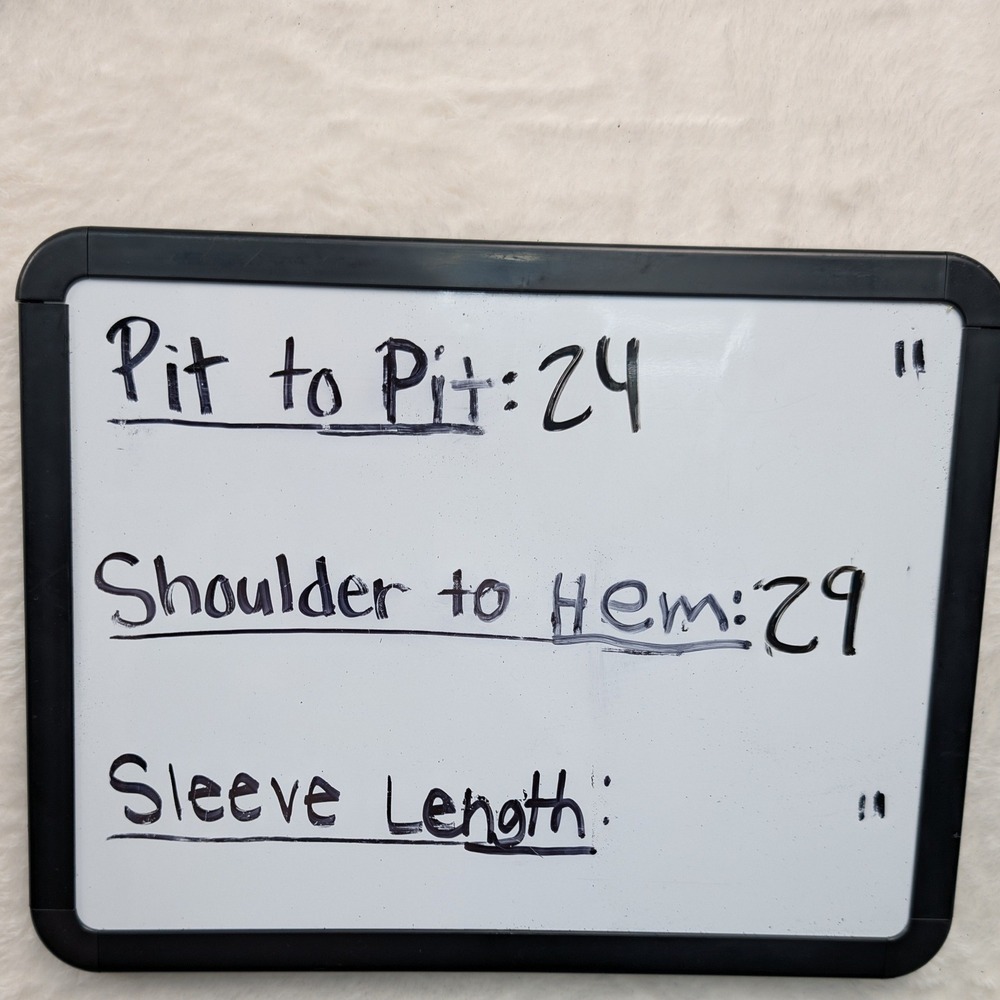 Pit to Pit: 24 "
Shoulder to Hem: 29
Sleeve Length: "